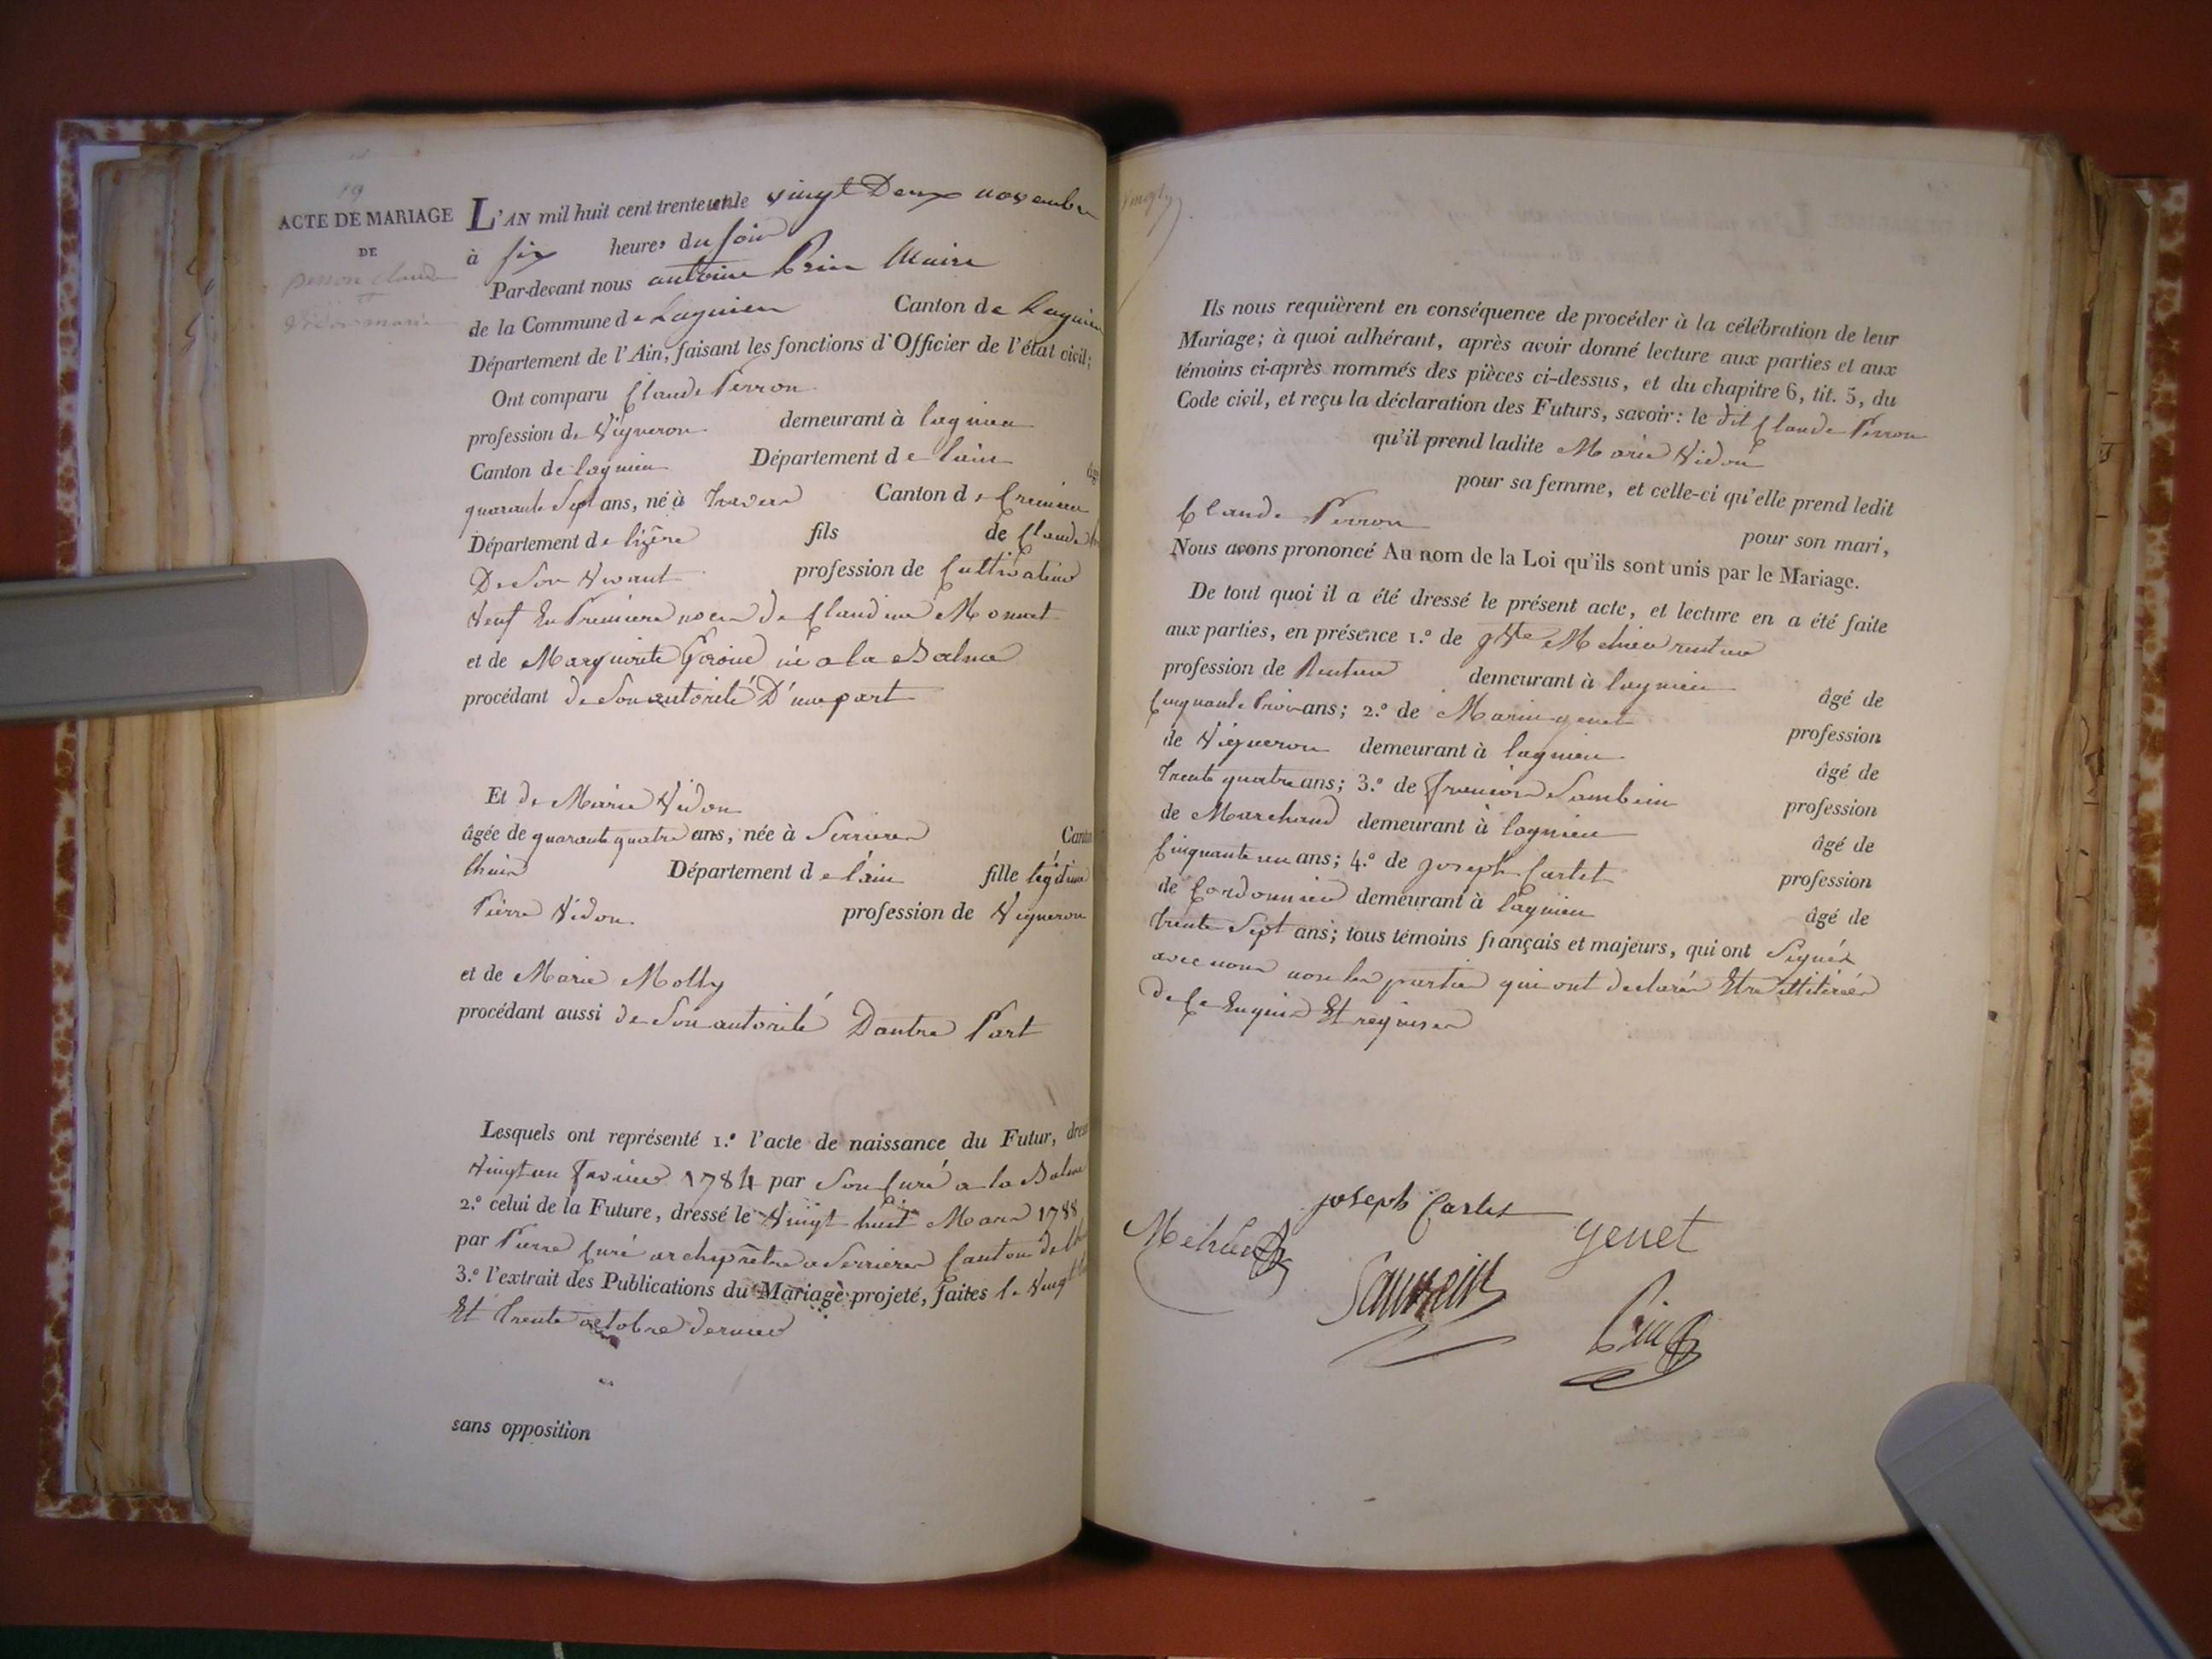 19
ACTE DE MARIAGE
DE
perron claude
vidon marie
L'AN mil huit cent trente un le vingt Deux novembre
à six heures du soir
Par-devant nous antoine Prin Maire
de la Commune de Lagnieu Canton de Lagnieu
Département de l'Ain, faisant les fonctions d'Officier de l'état civil;
Ont comparu Claude Perron
profession de Vigneron demeurant à lagnieu
Canton de lagnieu Département de lain
quarante Sept ans, né à Canton de Cremieu
Département de lizère fils de Claude
De Son Vivant profession de Cultivateur
Veuf En Premiere noces de Claudine Monnet
et de Marguerite Giroud né a la Balme
procédant de Son autorité D'une part
Et de Marie Vidon
âgée de quarante quatre ans, née à Serrieres Canton
lhuis Département de l'ain fille légitime
Pierre Vidon profession de Vigneron
et de Marie Molly
procédant aussi de Son autorité Dautre Part
Lesquels ont représenté 1.º l'acte de naissance du Futur, dressé
Vingt un Fevrier 1784 par Son Curé a la Balme
2.º celui de la Future, dressé le Vingt huit Mars 1788
par Pierre Curé archiprêtre a Serrieres Canton de
3.º l'extrait des Publications du Mariage projeté, faites le Vingt
Et trente octobre dernier
sans opposition
Ils nous requièrent en conséquence de procéder à la célébration de leur
Mariage; à quoi adhérant, après avoir donné lecture aux parties et aux
témoins ci-après nommés des pièces ci-dessus, et du chapitre 6, tit. 5, du
Code civil, et reçu la déclaration des Futurs, savoir: le dit Claude Perron
qu'il prend ladite Marie Vidon
pour sa femme, et celle-ci qu'elle prend ledit
Claude Perron pour son mari,
Nous avons prononcé Au nom de la Loi qu'ils sont unis par le Mariage.
De tout quoi il a été dressé le présent acte, et lecture en a été faite
aux parties, en présence 1.º de rentier
profession de Rentier demeurant à lagnieu âgé de
Cinquante trois ans; 2.º de Marin genet profession
de Vigneron demeurant à lagnieu âgé de
trente quatre ans; 3.º de profession
de Marchand demeurant à lagnieu âgé de
Cinquante un ans; 4.º de joseph Carlet profession
de Cordonnier demeurant à lagnieu âgé de
trente Sept ans; tous témoins français et majeurs, qui ont Signés
avec nous non les parties qui ont declarés Etre illitérés
de Ce Enquis Et requises
joseph Carlet
genet
Prin